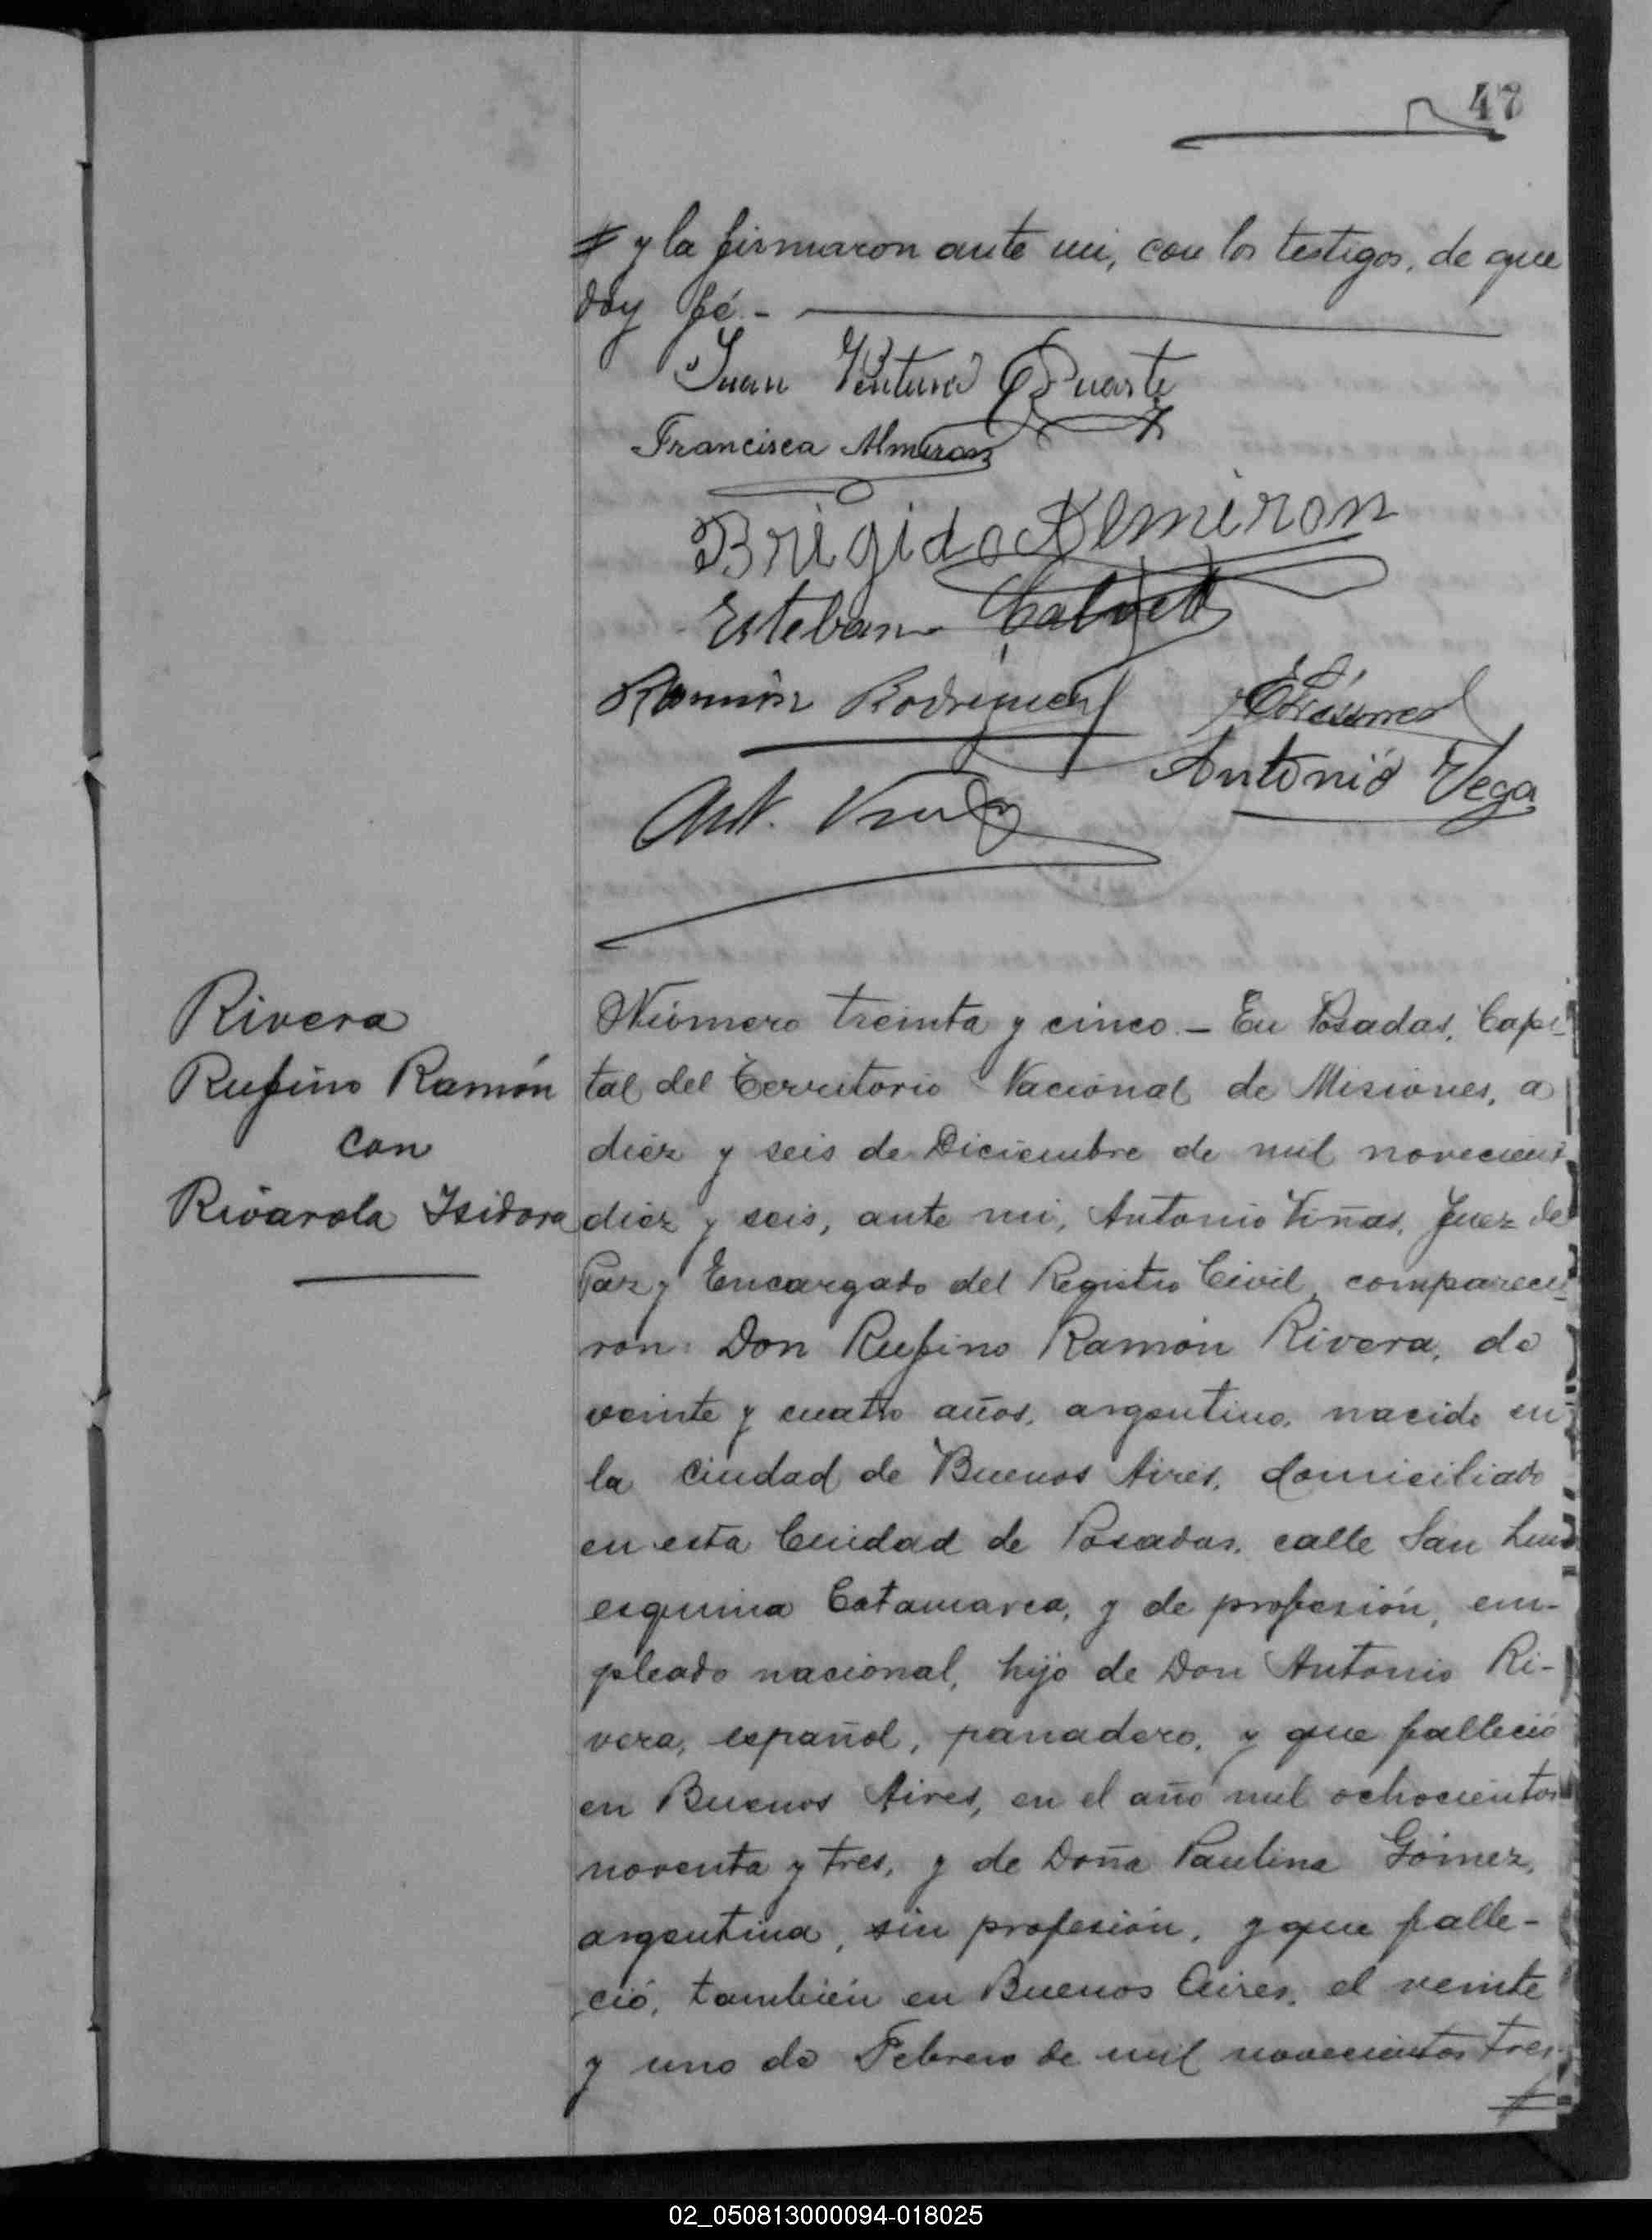 47
# y la firmaron ante mi, con los testigos, de que
doy fé.-
Juan Ventura Duarte
Francisca Almiron
Brigido Almiron
Esteban
Ramón Rodriguez
Antonio Vega
Ant. Viñas
Rivera
Rufino Ramón
con
Rivarola Isidora
Número treinta y cinco.- En Posadas, Capi-
tal del Territorio Nacional de Misiones, a
diez y seis de Diciembre de mil novecient
diez y seis, ante mi, Antonio Viñas, Juez de
Paz y Encargado del Registro Civil, comparecie-
ron: Don Rufino Ramón Rivera, de
veinte y cuatro años, argentino, nacido en
la ciudad de Buenos Aires, domiciliado
en esta Ciudad de Posadas, calle San Luis
esquina Catamarca, y de profesión, em-
pleado nacional, hijo de Don Antonio Ri-
vera, español, panadero, y que falleció
en Buenos Aires, en el año mil ochocientos
noventa y tres, y de Doña Paulina Gómez,
argentina, sin profesión, y que falle-
ció, también en Buenos Aires, el veinte
y uno de Febrero de mil novecientos tres.
#
02_050813000094-018025